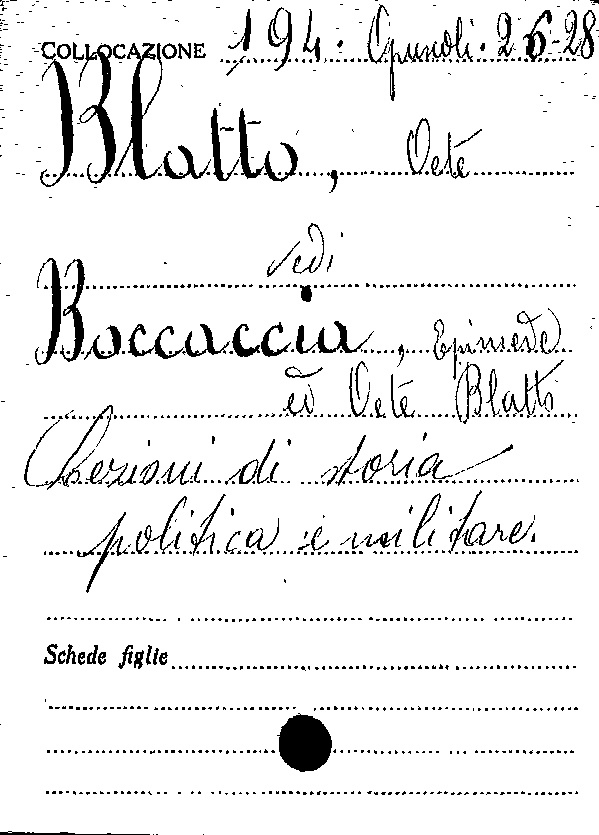 COLLOCAZIONE 194. Opuscoli. 26-28
Blatto, Oete
vedi
Boccaccia, Epimede
ed Oete Blatto
Lezioni di storia
politica e militare.
Schede figlie